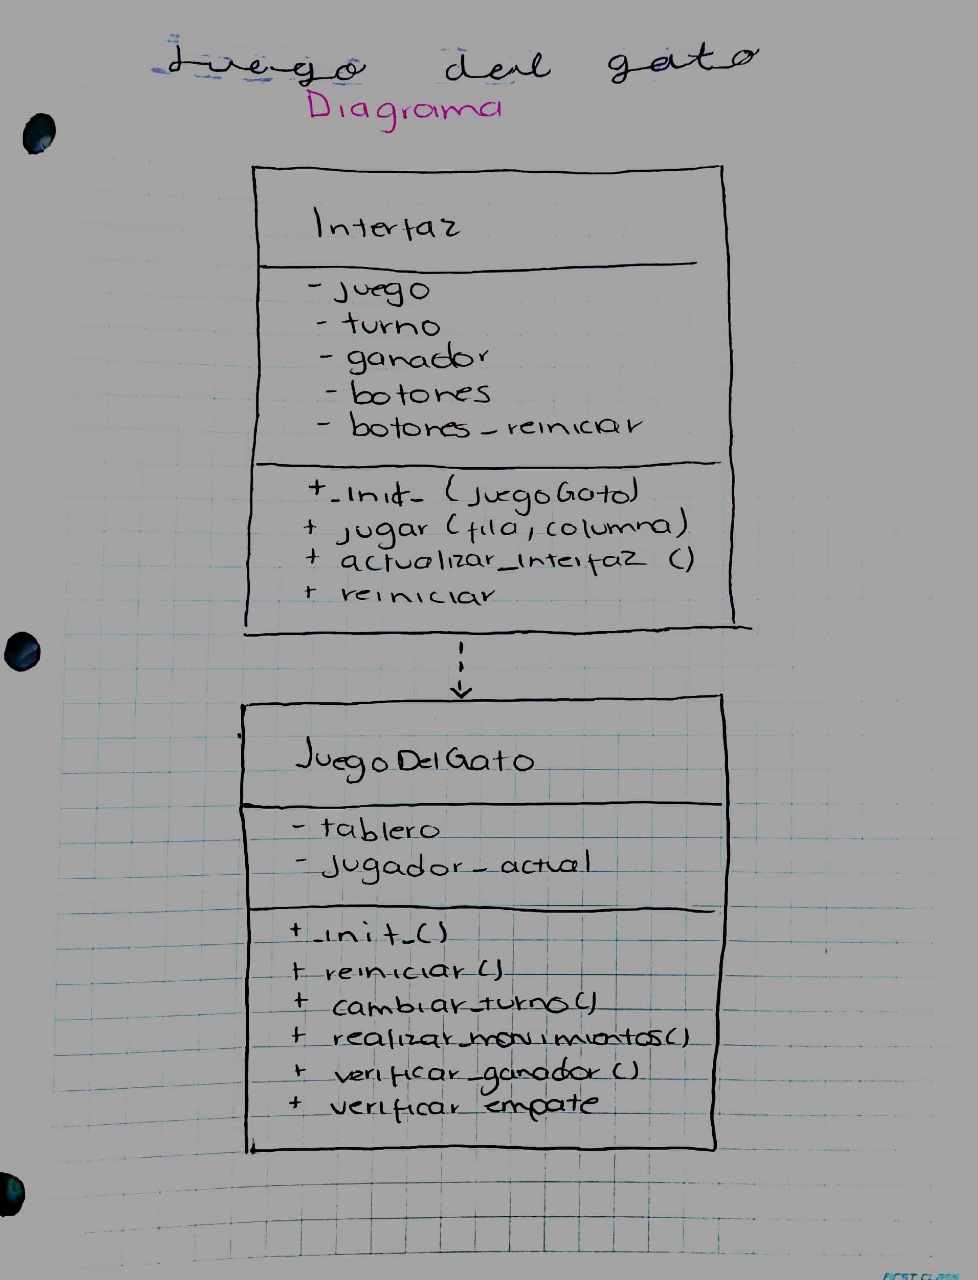 Juego del gato
Diagrama
Interfaz
- juego
- turno
- ganador
- botones
- botones_reiniciar
+_init_ (juegoGato)
+ jugar (fila, columna)
+ actualizar_interfaz ()
+ reiniciar
JuegoDelGato
- tablero
- jugador_actual
+_init_()
+ reiniciar()
+ cambiar_turno()
+ realizar_movimientos()
+ verificar_ganador()
+ verificar empate
FIRST CLASS